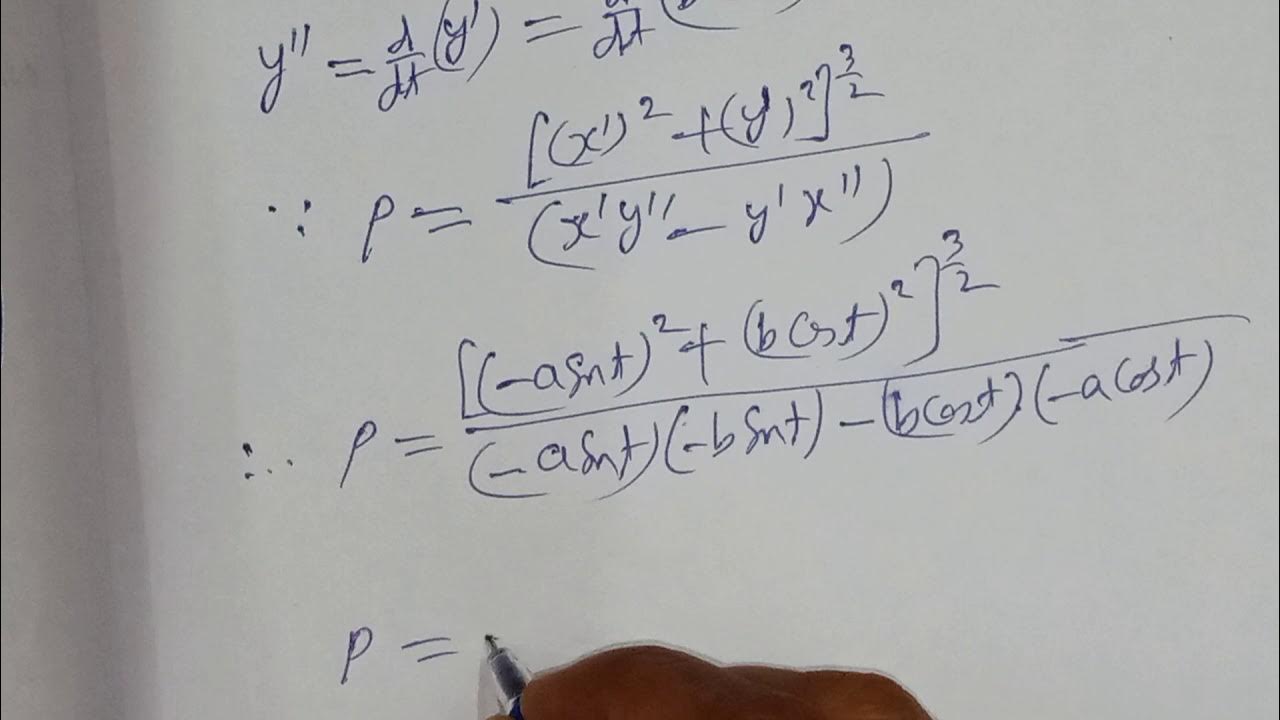 y'' = d/dt (y') = d/dt (
∵ ρ = [(x')² + (y')²]^3/2 / (x'y'' - y'x'')
∴ ρ = [(-a sint)² + (b cost)²]^3/2 / (-a sint)(-b sint) - (b cost)(-a cost)
ρ =